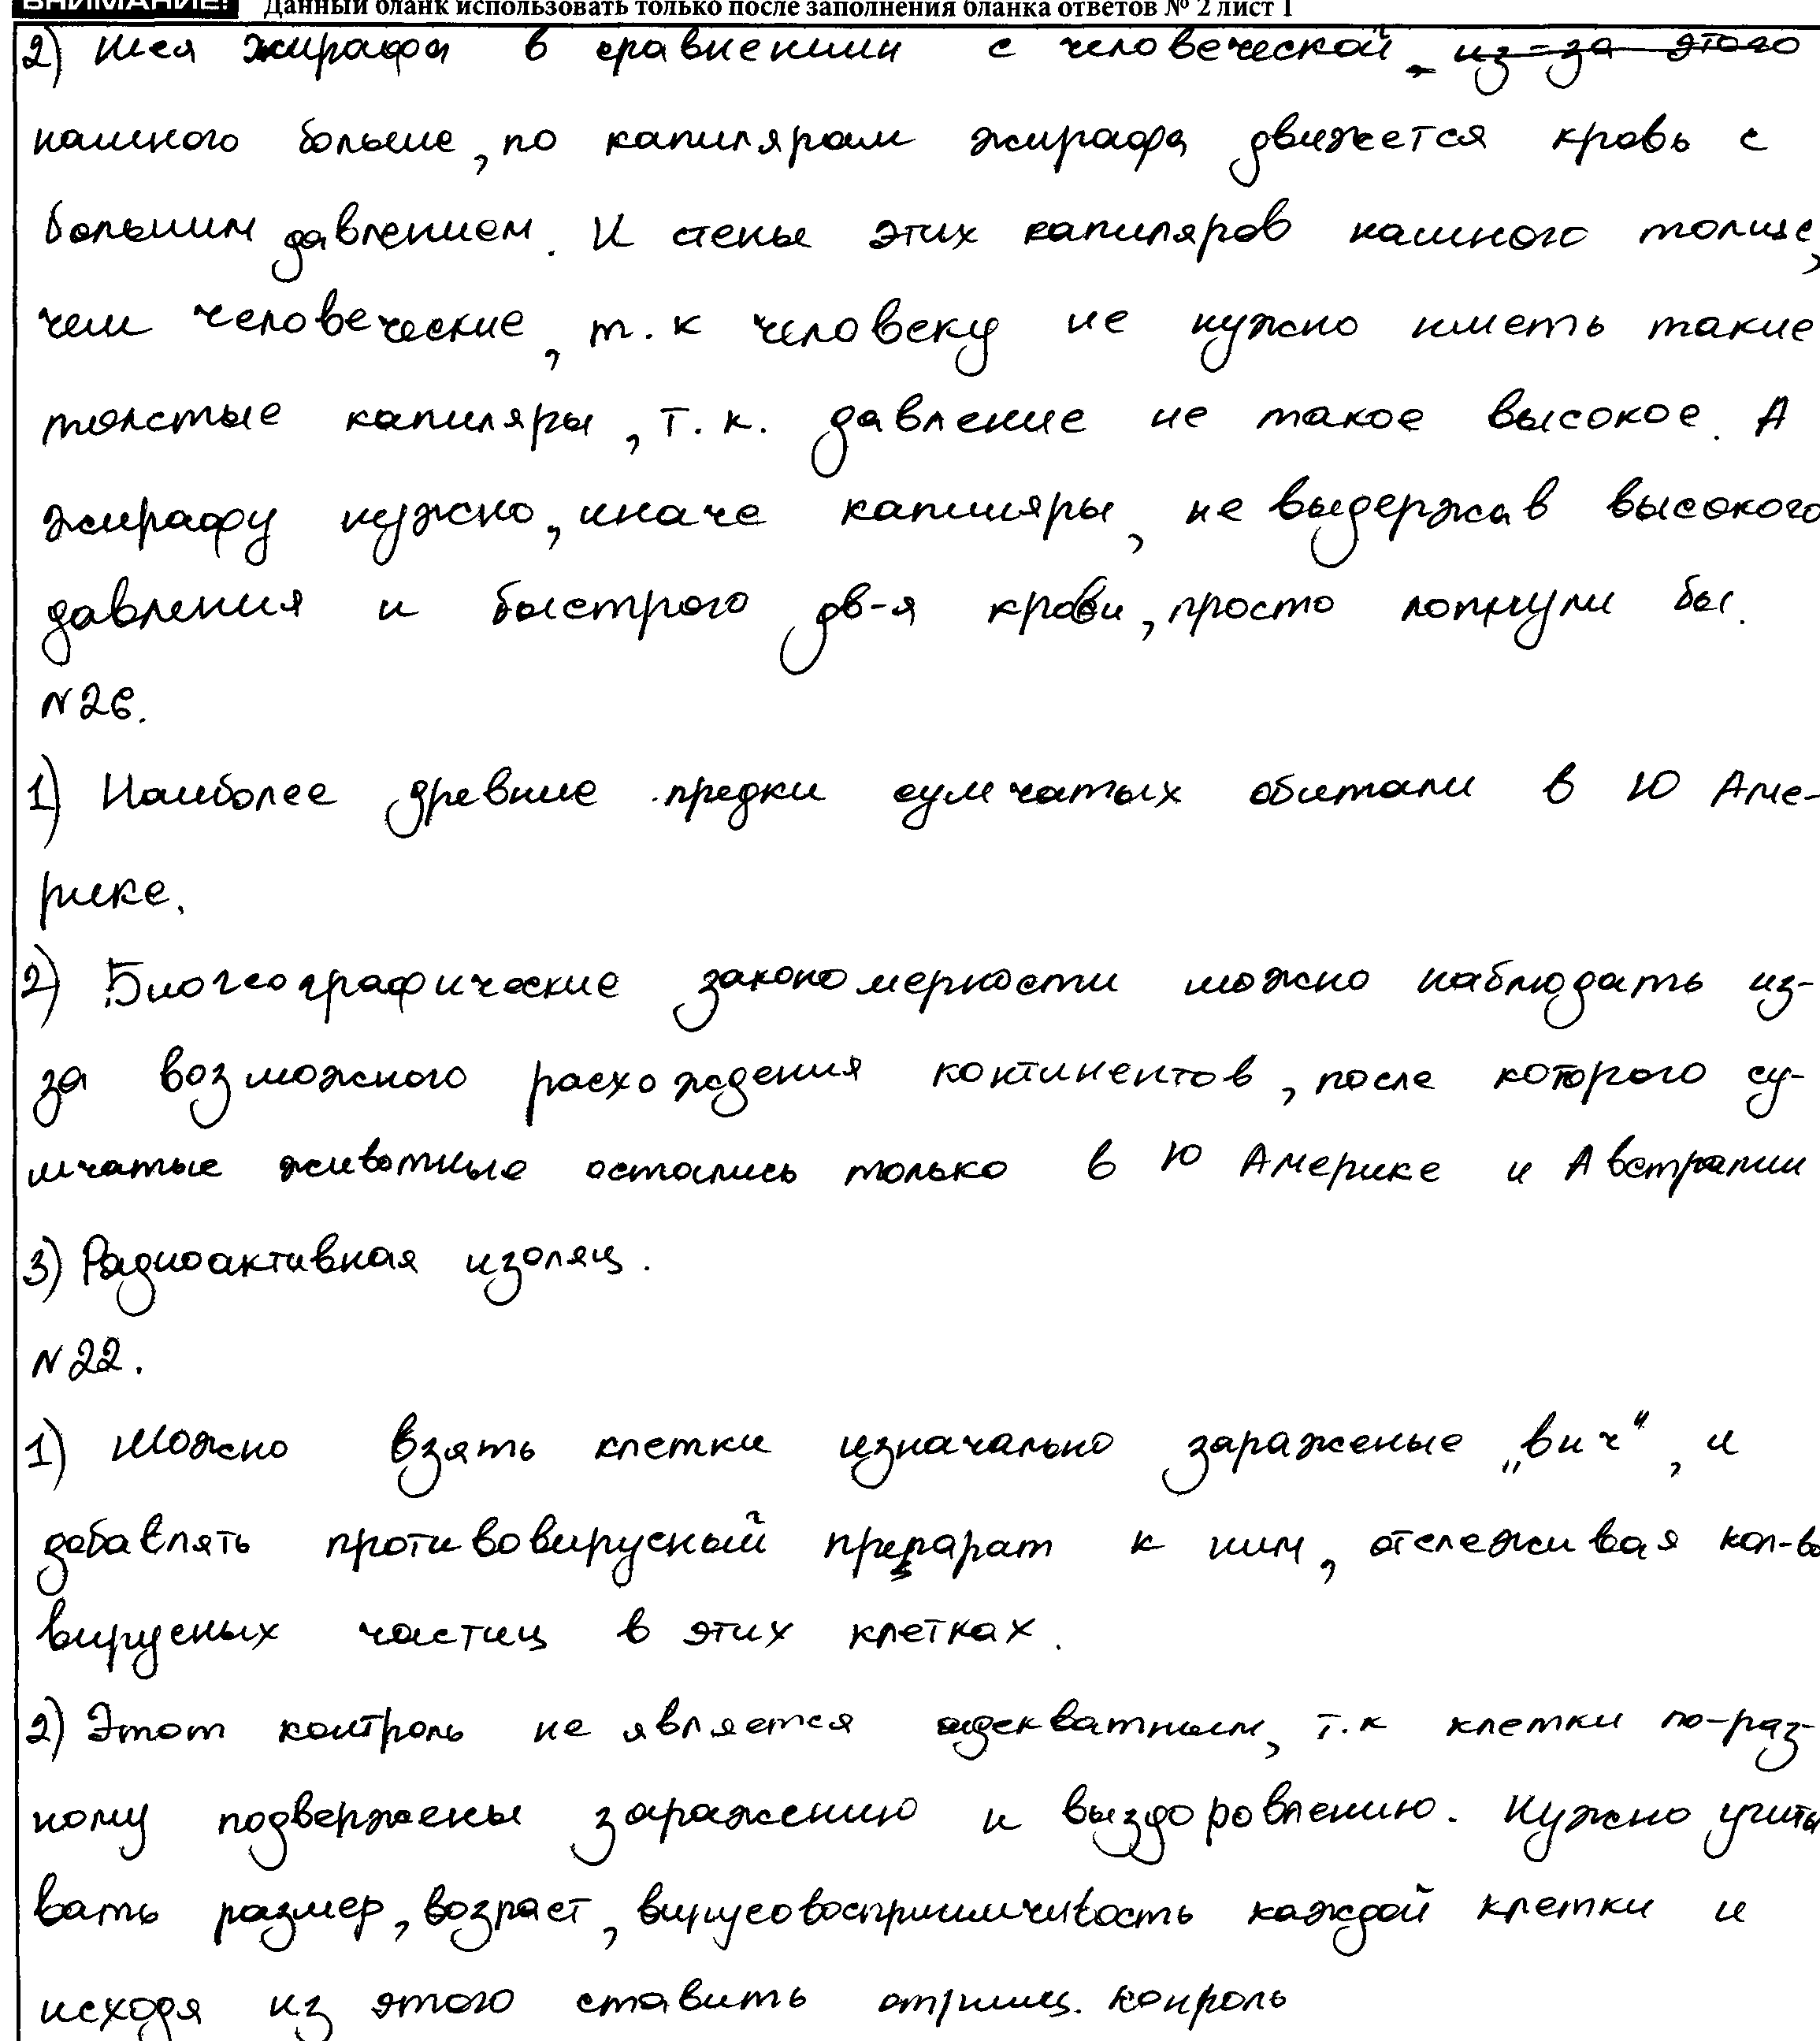 ВНИМАНИЕ! Данный бланк использовать только после заполнения бланка ответов № 2 лист 1
2) Шея жирафа в сравнении с человеческой из-за этого
намного больше, по капилярам жирафа движется кровь с
большим давлением. И стены этих капиляров намного толще,
чем человеческие, т.к человеку не нужно иметь такие
толстые капиляры, т.к. давление не такое высокое. А
жирафу нужно, иначе капиляры, не выдержав высокого
давления и быстрого дв-я крови, просто лопнули бы.
№26.
1) Наиболее древние предки сумчатых обитали в Ю Аме-
рике.
2) Биогеографические закономерности можно наблюдать из-
за возможного расхождения континентов, после которого су-
мчатые животные остались только в Ю Америке и Австралии
3) Радиоактивная изоляц.
№22.
1) Можно взять клетки изначально зараженые „вич“, и
добавлять противовирусный препарат к ним, отслеживая кол-во
вирусных частиц в этих клетках.
2) Этот контроль не является адекватным, т.к клетки по-раз-
ному подвержены заражению и выздоровлению. Нужно учиты
вать размер, возраст, вирусовосприимчивость каждой клетки и
исходя из этого ставить отриц. конроль